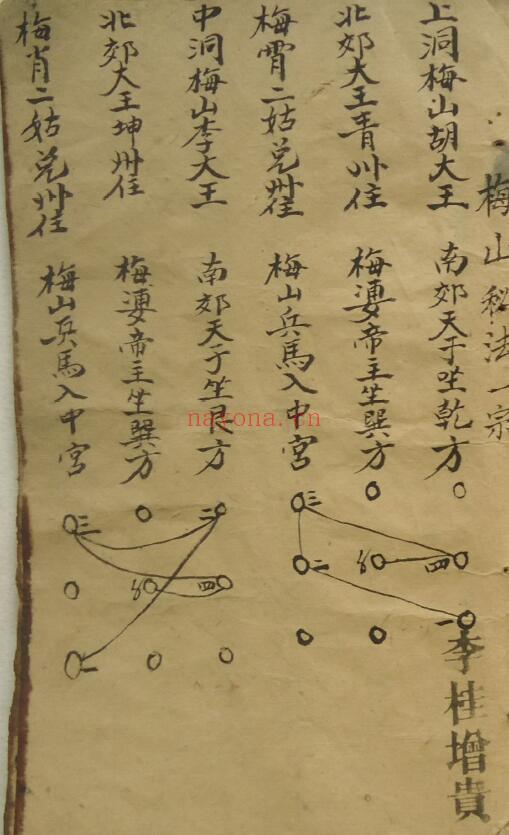 梅山秘法一宗
上洞梅山胡大王 南郊天子坐乾方
北郊大王青州住 梅婆帝主坐巽方
梅霄二姑兑州住 梅山兵馬入中宮
中洞梅山李大王 南郊天子坐艮方
北郊大王坤州住 梅婆帝主坐巽方
梅肖二姑兑州住 梅山兵馬入中宮
三 二 四 一
三 二 四 一
李桂增貴
nayona.cn